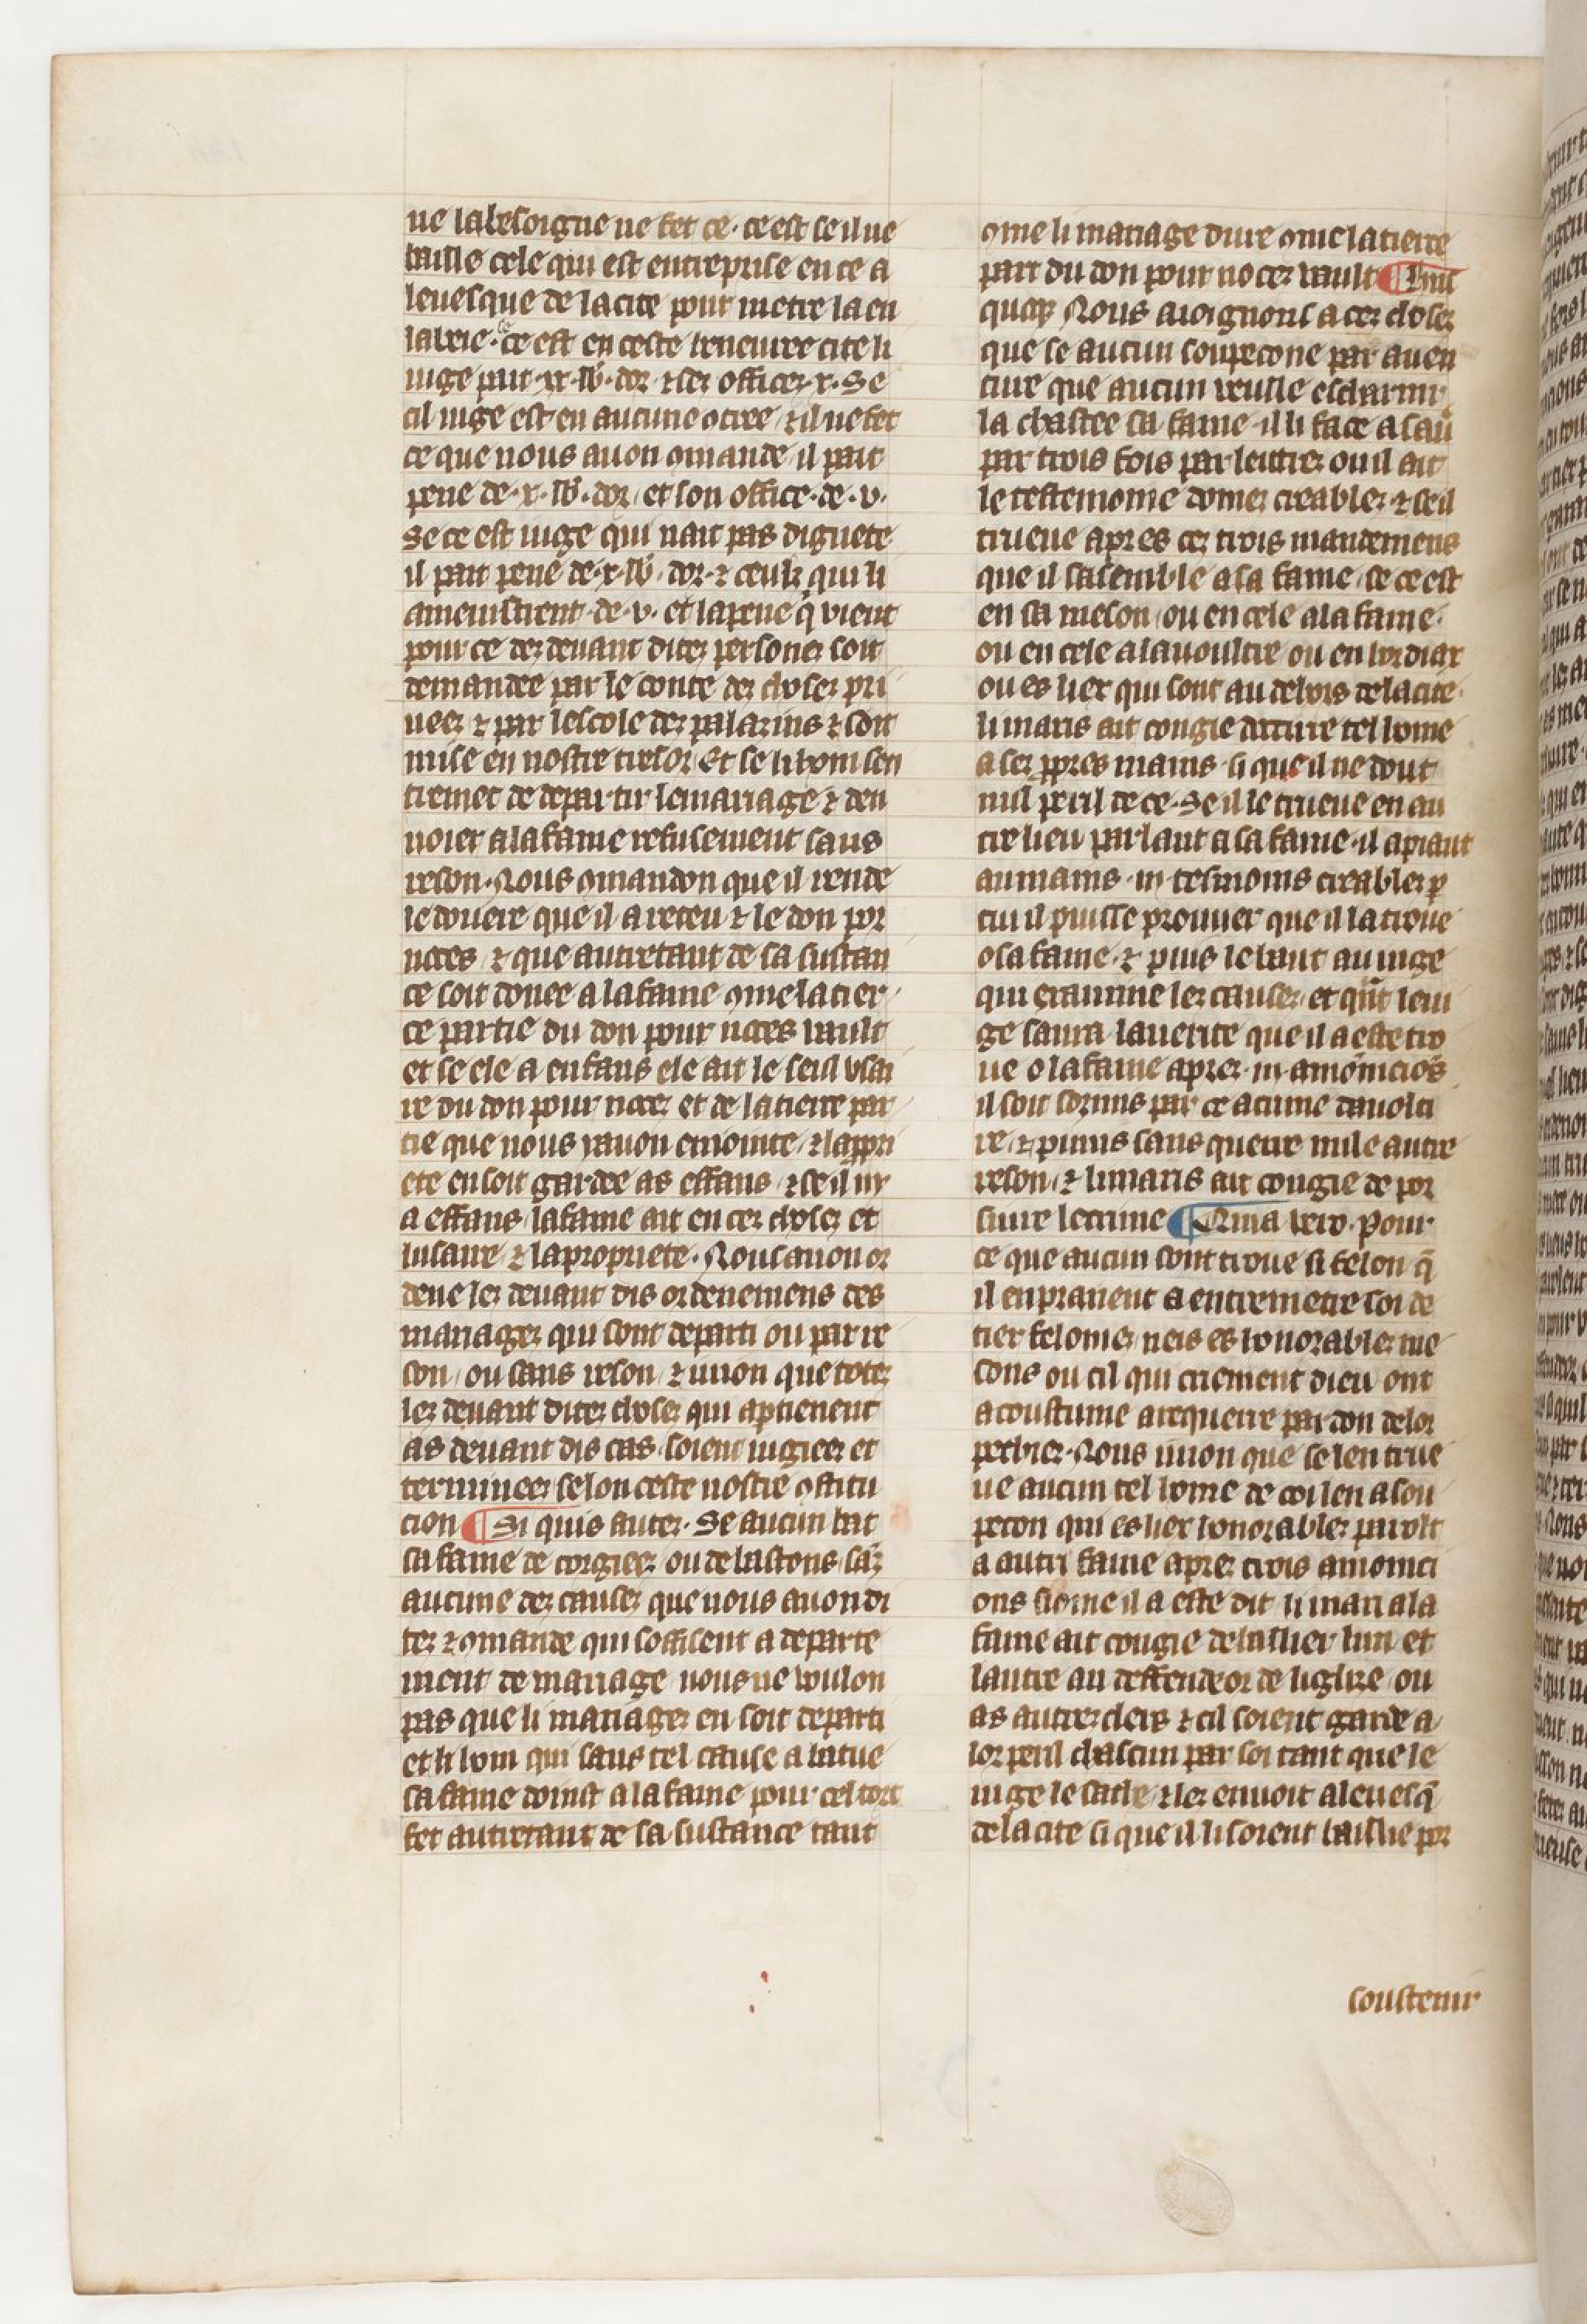 ne la besoigne ne fet ce. ce est se il ne
baille cele qui est entreprise en ce a
levesque de la cite pour metre la en
la vie. ce est en ceste beneuree cite li
iuge pait .xx. lb. dor. et ses offices .x. Se
cil iuge est en aucune otree / et il ne fet
ce que nous avon omande / il pait
pene de .x. lb. dor / et son office de .v.
Se ce est iuge qui nait pas dignete
il pait pene de .x. lb. dor. et ceulz qui li
amenistrent de .v. et la pene q̃ vient
pour ce dez devant ditez personez soit
demandee par le conte dez chosez pri
veez et par lescole dez palazins et soit
mise en nostre tresor. Et se li hom sen
tremet de departir le mariage et den
voier a la fame refusement sans
reson. Nous omandon que il rende
le douere que il a receu et le don por
noces / et que autretant de sa sustan
ce soit donee a la fame ome la tier
ce partie du don pour noces vault
et se ele a enfans ele ait le seul usai
re du don pour nocez et de la tierce par
tie que nous i avon emointe / et la ppri
ete en soit gardee as effans / et se il ni
a effans / la fame ait en cez chosez et
lusaire et la propriete. Nous avon or
dene lez devant dis ordenemens des
mariagez qui sont departi ou par re
son / ou sans reson / et uuon que totez
lez devant ditez chosez qui aptienent
as devant dis cas soient iugieez et
termineez selon ceste nostre ostitu
cion ¶ Si quis autez. Se aucun bat
sa fame de corgieez ou de bastons sãz
aucune dez causez que nous avon di
tez et omande qui soffisent a departe
ment de mariage nous ne voulon
pas que li mariagez en soit departi
et li hom qui sans tel cause a batue
sa fame doinst a la fame pour cel tort
fet autretant de sa sustance tant
ome li mariage dure ome la tierce
part du don pour nocez vault ¶
quoqz Nous aioignons a cez chosez
que se aucun soupecone par aven
ture que aucun veulle escharnir
la chastee sa fame il li face a sav̄
par trois fois par lettrez ou il ait
le testemoine domez creablez et se il
trueve apres cez trois mandemens
que il sasemble a sa fame / se ce est
en sa meson / ou en cele a la fame.
ou en cele a lavoultre ou en
ou es liex qui sont au dehors de la cite.
li maris ait congie docirre tel home
a sez ppres mains si que il ne dout
nul peril de ce. Se il le trueve en au
tre lieu parlant a sa fame il apiaut
au mains .iii. tesmoins creablez p
cui il puisse prouver que il la trove
o sa fame et puis le baut au iuge
qui examine lez causez et qñt le iu
ge saura la verite que il a este tro
ve o la fame aprez .iii. amonicions
il soit somis par ce a crime davolti
re / et punis sans querre nule autre
reson / et li maris ait congie de por
suire le crime ¶ Quia vero. Pour
ce que aucun sont trove si felon q̃
il enpranent a entremetre soi de
tier felonie neis es honorablez me
sons ou cil qui criement dieu ont
acoustume a requerre pardon de lor
pechiez. Nous uuon que se len true
ve aucun tel home de coi len a sou
pecon qui es liex honorablez parolt
a autri fame aprez trois amonici
ons si ome il a este dit li mari a la
fame ait congie de baillier lun et
lautre au deffendeor de liglise ou
as autrez clers et cil soient garde a
lor peril chascun par soi tant que le
iuge le sache et lez envoit a levesq̃
de la cite si que il li soient baillie por
soustenir